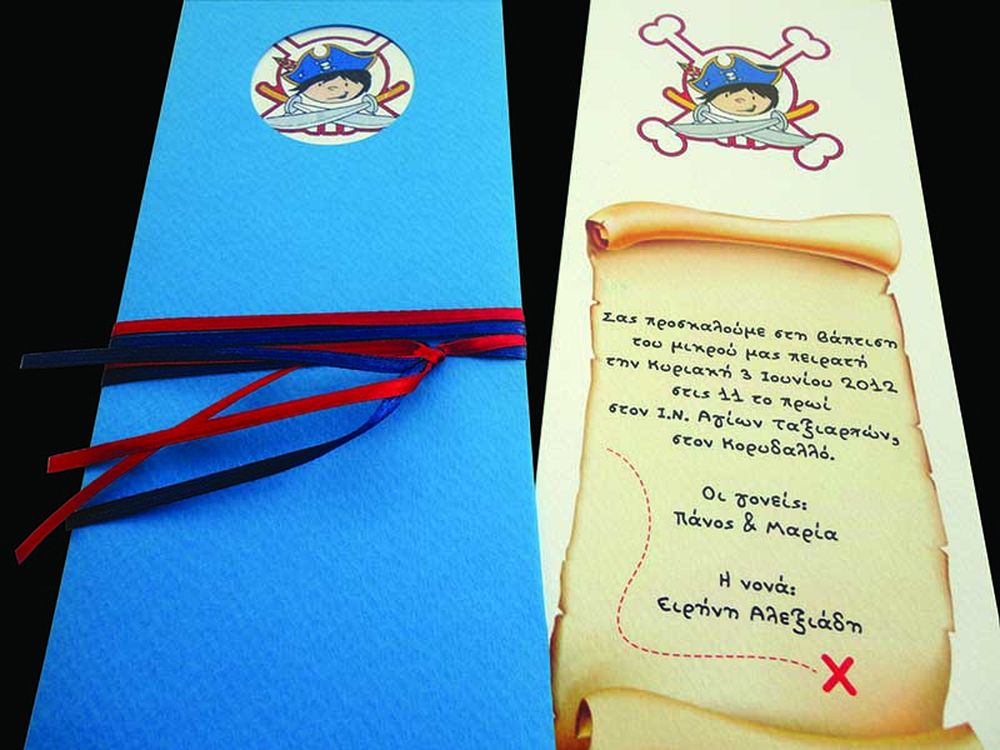 Σας προσκαλούμε στη βάπτιση
του μικρού μας πειρατή
την Κυριακή 3 Ιουνίου 2012
στις 11 το πρωί
στον Ι.Ν. Αγίων Ταξιαρπών,
στον Κορυδαλλό.
Οι γονείς:
Πάνος & Μαρία
Η νονά:
Ειρήνη Αλεξιάδη